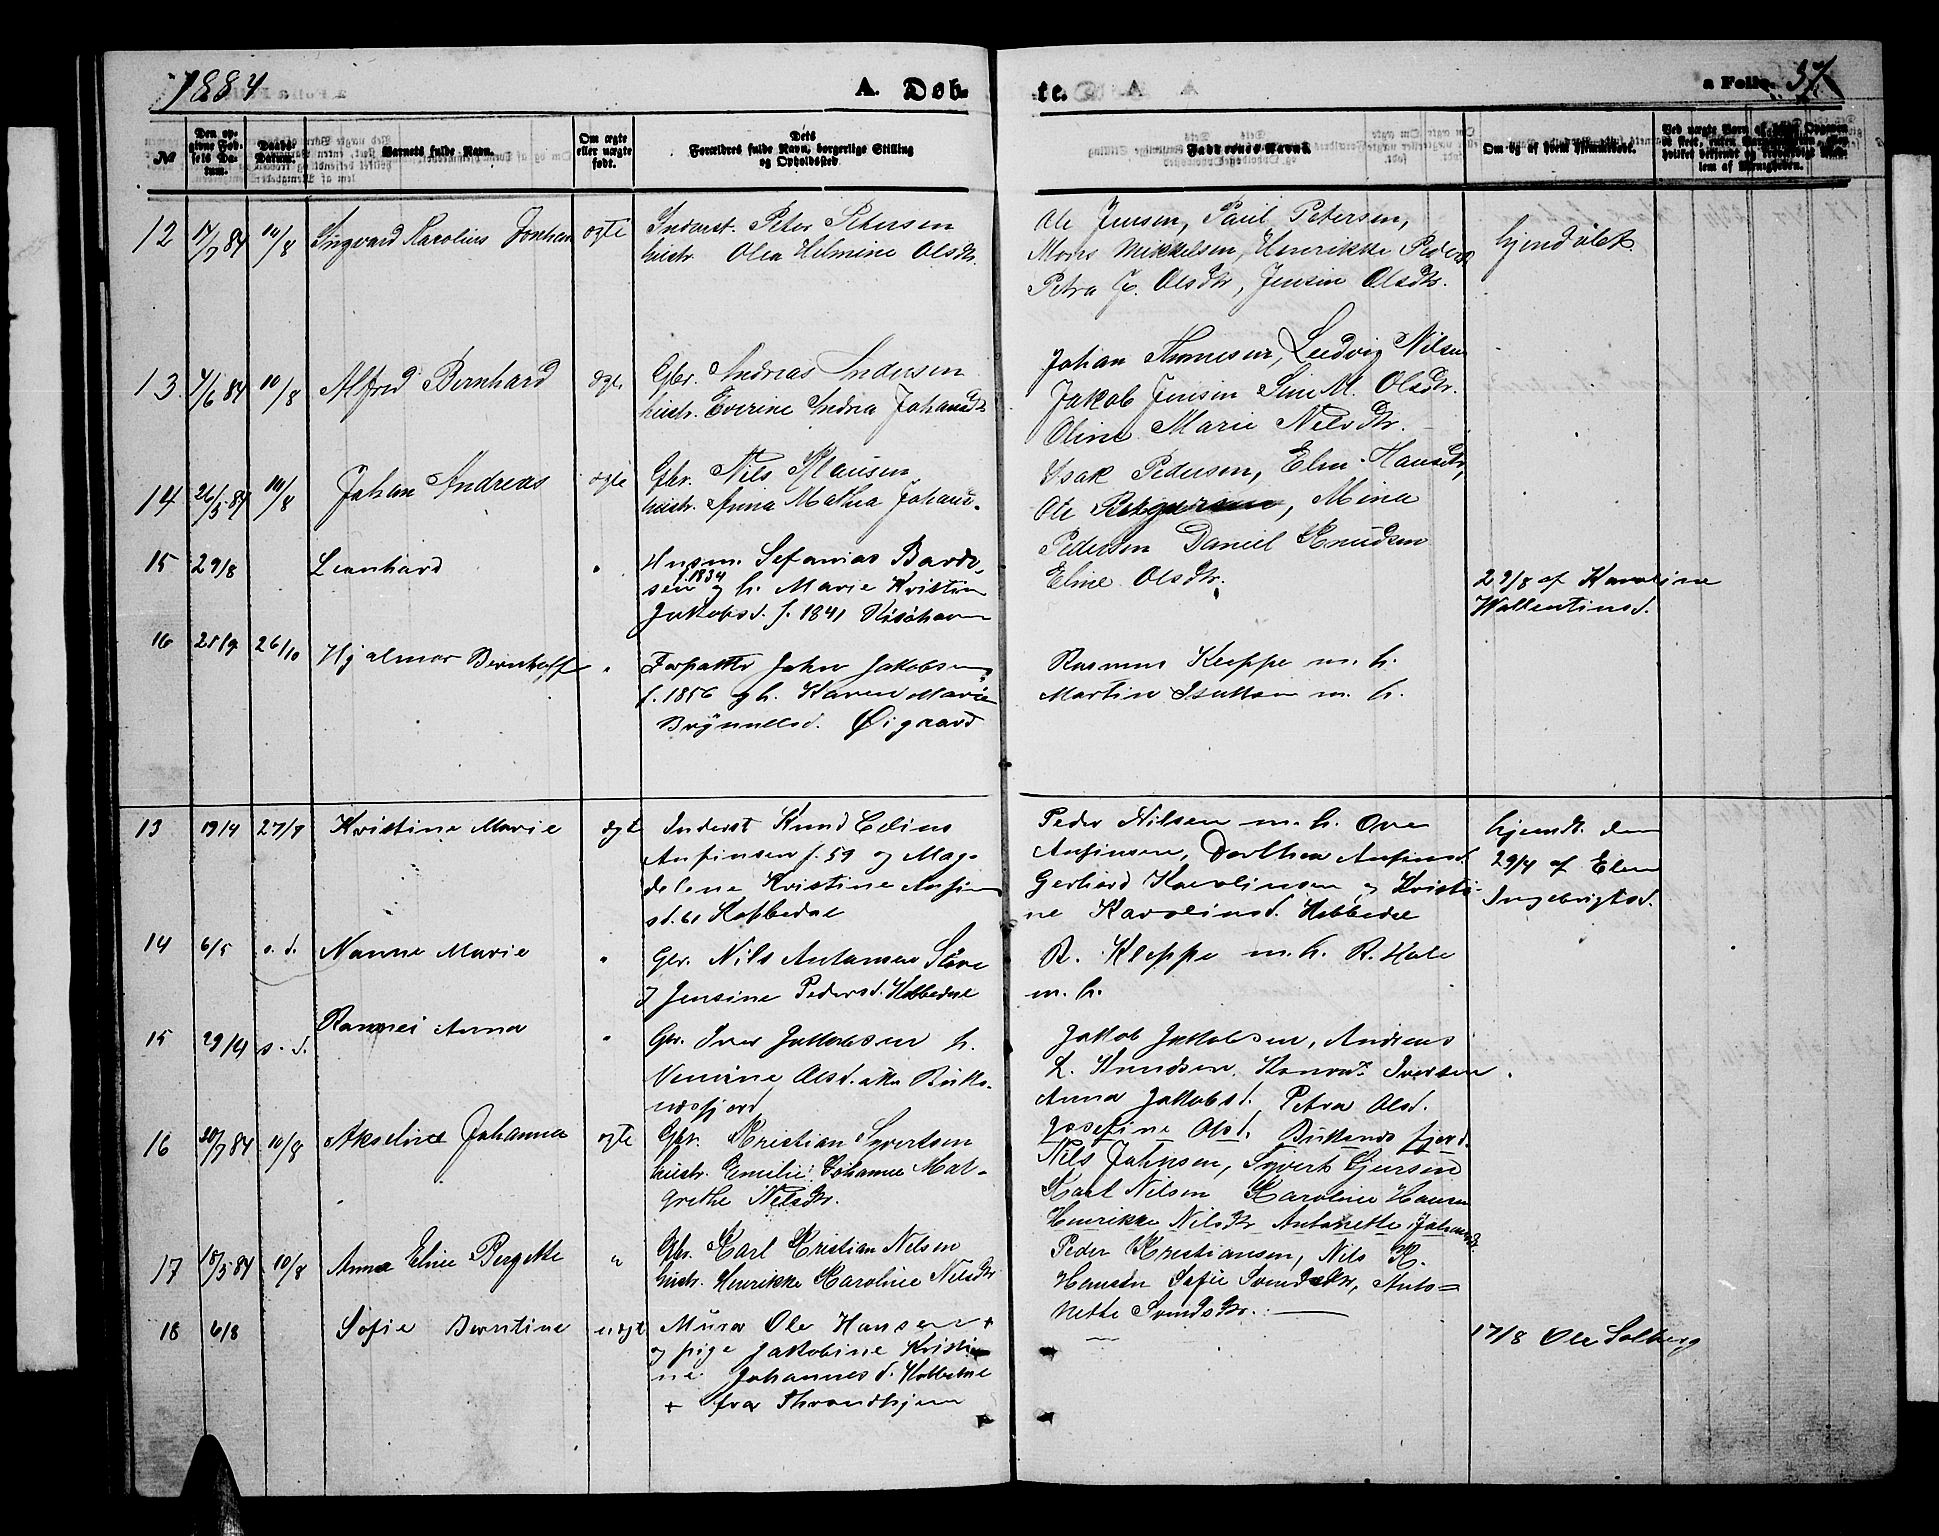 1884
A. Døb-
te.
a Folio. 37
No
Den op-
givne Fød-
sels Da-
tum.
Daabs-
Datum.
Barnets fulde Navn.
Om ægte
eller uægte
født.
Dets
Forældres fulde Navn, borgerlige Stilling
og Opholdssted.
Faddernes Navne.
Om og af hvem hjemmedøbt.
12 14/7 84 10/8 Ingvard Karolius Johan ægte Inderst. Peter Petersen
hustr. Olea Helmine Olsdtr.
Ole Jensen, Paul Petersen,
Mons Mikkelsen, Henrikke Peders
Petra J. Olsdtr, Jensine Olsdtr.
hjemdøbt
13. 4/6 84 10/8 Alfred Bernhard ægte Gbr. Andreas Andersen
hustr. Everine Andrea Johansdtr
Johan Thomesen, Ludvig Nilsen
Jakob Jensen Sine M. Olsdtr.
Oline Marie Nilsdtr.
14 26/5 84 10/8 Johan Andreas ægte Gbr. Nils Klausen
hustr. Anna Mathea Johans.
Isak Pedersen, Elen Hansdtr,
Ole , Mina
Pedersen Daniel Knudsen
Eline Olsdtr.
15 29/8 Leonhard " Husm. Sefanias Bardo-
sen f. 1834 og h. Marie Kristin
Jakobsd. f. 1841 Risøhavn
29/8 af Karoline
Wallentinsd.
16 21/9 26/10 Hjalmar Bernhoff " Forpakter John Jakobsen
f. 1856 og h. Karen Marie
Brynnelsd. Øigaard
Rasmus Kleppe m. h.
Martin Isaksen m. h.
13 19/4 27/7 Kristine Marie ægte Inderst Knud Edius
Anfinsen f. 59 og Mag-
dalene Kristine Anfin
sd. 61 Kobbedal
Peder Nilsen m. h. Ove
Anfinsen, Dorthea Anfinsd.
Gerhard Karolinsen og Kristi-
ne Karolinsd. Kobbedal
hjemdt. den
29/4 af Elen
Ingebrigtsd.
14 6/5 s. d. Nanne Marie " Gbr. Nils Antonsen Støve
og Jensine Pedersd. Kobbedal
R. Kleppe m. h. R. Hole
m. h.
15 29/4 s. d. Ramnei Anna " Gbr. Iver Jakobsen h.
Nemine Olsd. Buks-
nesfjord
Jakob Jakobsen, Andreas
L. Knudsen, Konrad Iversen.
Anna Jakobsd. Petra Olsd.
Josefine Olsd. Buksnesfjord.
16 20/7 84 10/8 Akseline Johanna ægte Gbr. Kristian Syvertsen
hustr. Emilie Johanne Mar-
grethe Nilsdtr.
Nils Johnsen, Syvert Ejersen
Karl Nilsen Karoline Hansen
Henrikke Nilsdtr Antonette Johansd.
17 18/5 84 10/8 Anna Eline Bergette " Gbr. Karl Kristian Nelsen
hustr. Henrikke Karoline Nilsdtr
Peder Kristiansen, Nils K.
Hansen Sofie Svendsdtr, Anto-
nette Svendsdtr.
18 6/8 Sofie Berntine uægt Murer Ole Hansen +
og pige Jakobine Kristi-
ne Johannesd. Kobbedal
+ fra Throndhjem
17/8 Ole Solberg